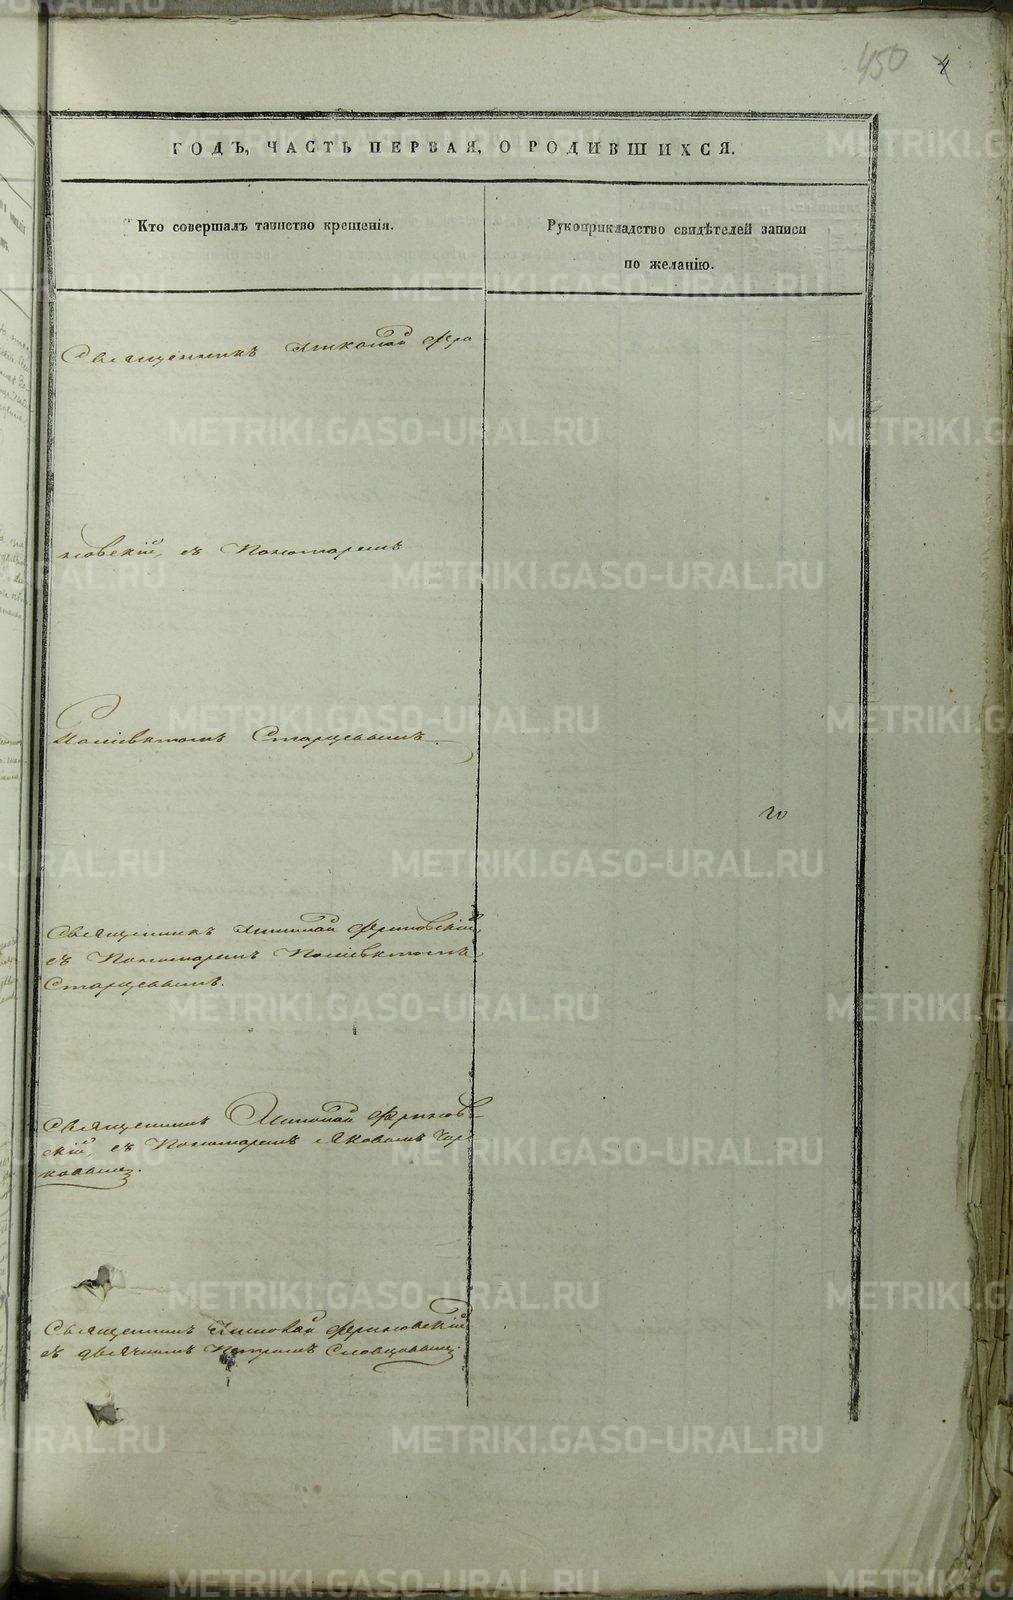 450 4
ГОДЪ, ЧАСТЬ ПЕРВАЯ, О РОДИВШИХСЯ.
Кто совершалъ таинство крещенія.
Рукоприкладство свидѣтелей записи
по желанію.
Священникъ Николай
новскій, съ Пономаремъ
Поліевктомъ Старцевымъ.
Священникъ Николай
съ Пономаремъ Поліевктомъ
Старцевымъ.
Священникъ Николай
скій, съ Пономаремъ Яковомъ
ковымъ.
Священникъ Николай
съ дьячкомъ Петромъ Словцовымъ.
METRIKI.GASO-URAL.RU